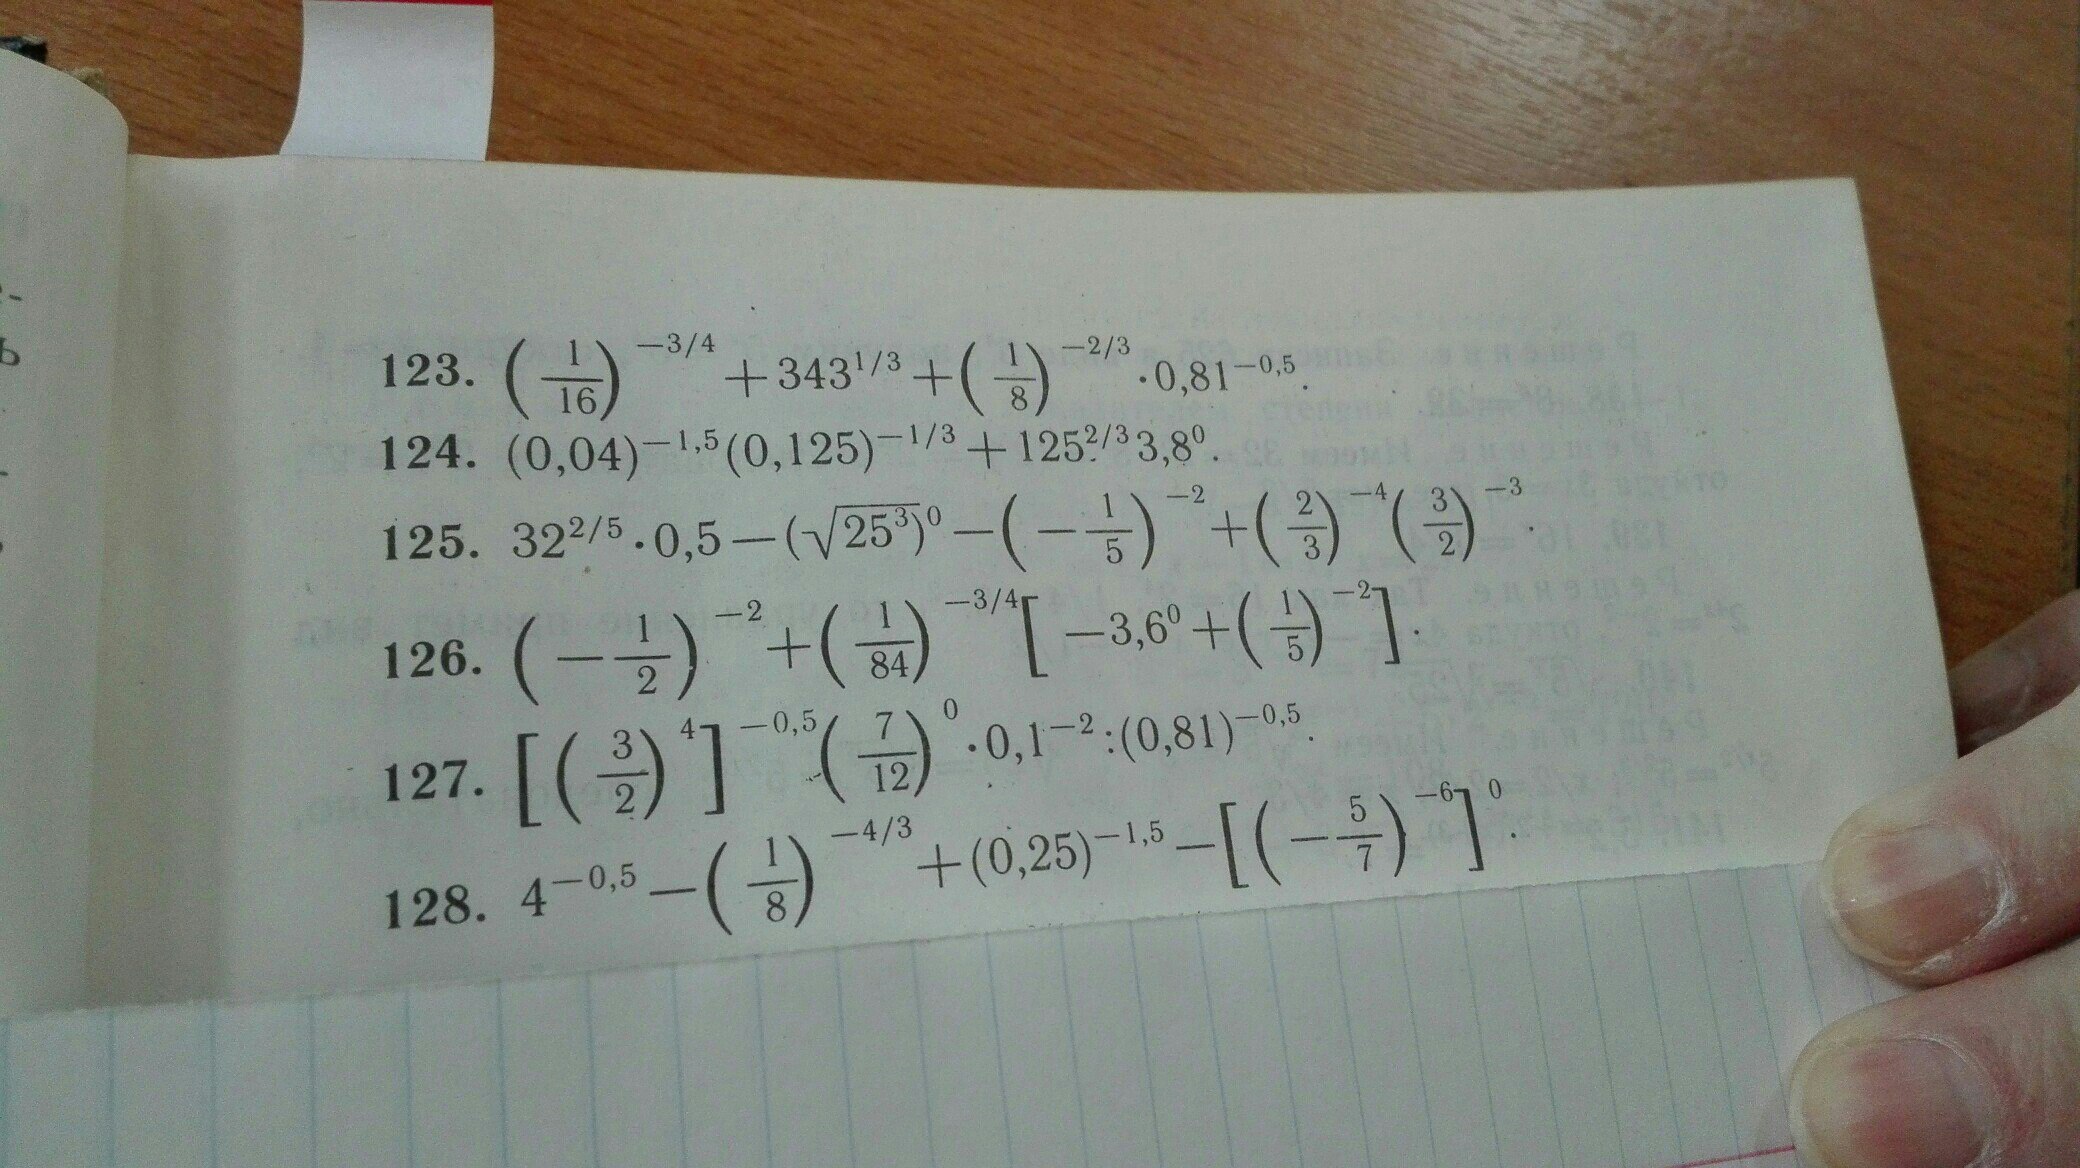 123. (1/16)^{-3/4} + 343^{1/3} + (1/8)^{-2/3} · 0,81^{-0,5}.
124. (0,04)^{-1,5} (0,125)^{-1/3} + 125^{2/3} 3,8^{0}.
125. 32^{2/5} · 0,5 − (√25^{3})^{0} − (−1/5)^{-2} + (2/3)^{-4} (3/2)^{-3}.
126. (−1/2)^{-2} + (1/84)^{-3/4} [−3,6^{0} + (1/5)^{-2}].
127. [(3/2)^{4}]^{-0,5} (7/12)^{0} · 0,1^{-2} : (0,81)^{-0,5}.
128. 4^{-0,5} − (1/8)^{-4/3} + (0,25)^{-1,5} − [(−5/7)^{-6}]^{0}.